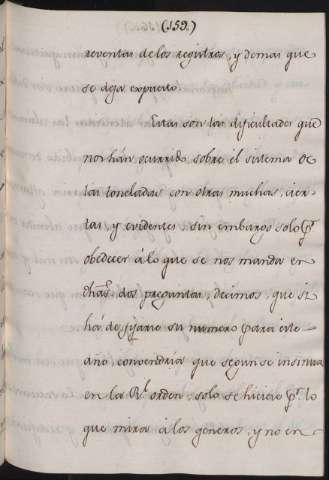 (159.)
reventas de los registros, y demas que
se deja expuesto.
Estas son las dificultades que
nos hán ocurrido sobre el sistema de
las toneladas con otras muchas, cier-
tas, y evidentes, sin embargo solo pr.
obedecer á lo que se nos manda en
dhas. dos preguntas, decimos, que si
há de fijarse su numero para este
año, convendria que segun se insinua
en la Rl. orden, solo se hiciera pr. lo
que mira á los generos, y no en